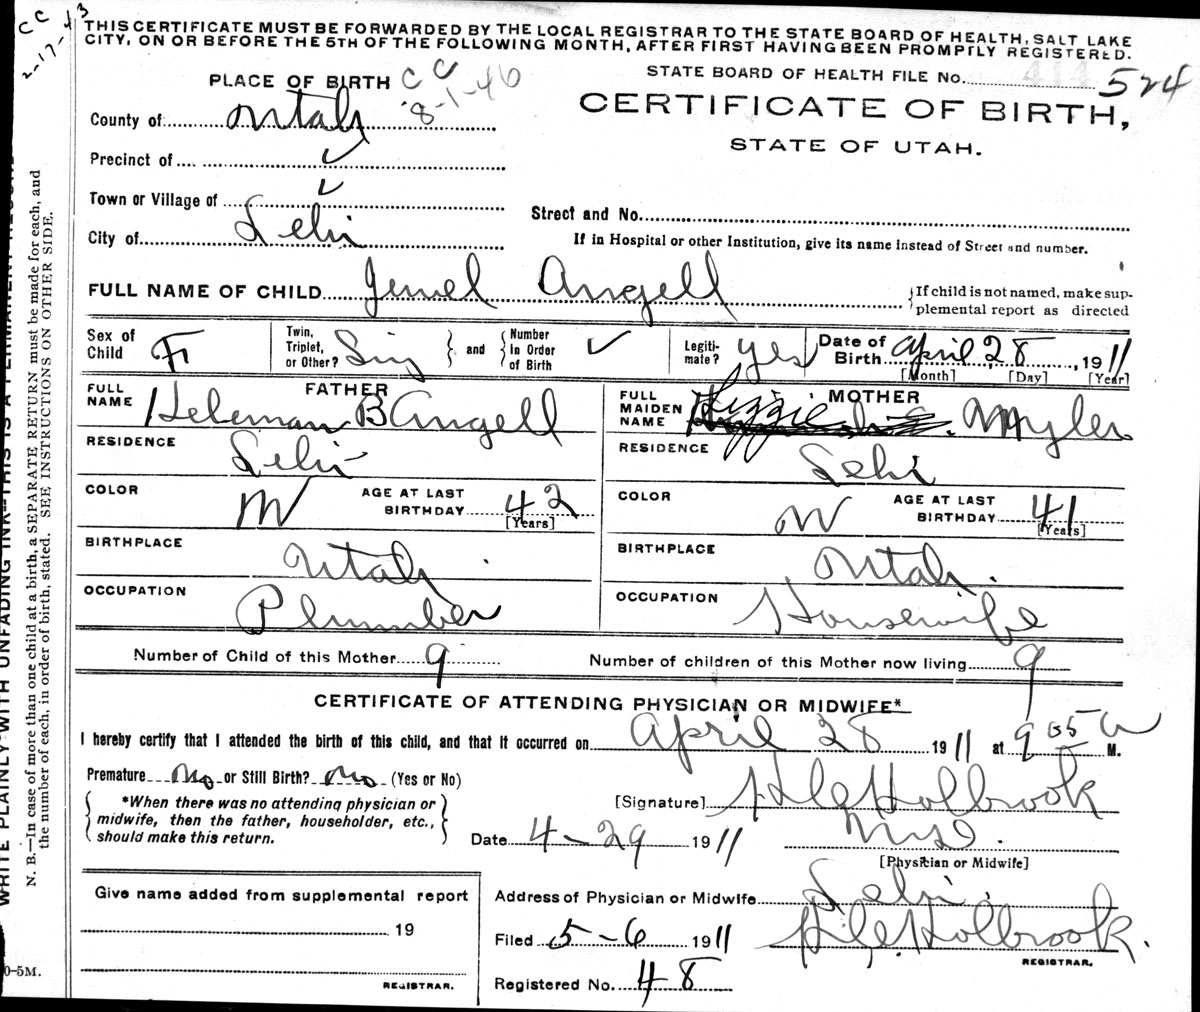 CC
2-17-43
THIS CERTIFICATE MUST BE FORWARDED BY THE LOCAL REGISTRAR TO THE STATE BOARD OF HEALTH, SALT LAKE
CITY, ON OR BEFORE THE 5TH OF THE FOLLOWING MONTH, AFTER FIRST HAVING BEEN PROMPTLY REGISTERED.
PLACE OF BIRTH CC
8-1-46
STATE BOARD OF HEALTH FILE No. 414 524
CERTIFICATE OF BIRTH,
STATE OF UTAH.
County of Utah
Precinct of
Town or Village of
City of Lehi
Street and No.
If in Hospital or other Institution, give its name instead of Street and number.
FULL NAME OF CHILD Jewel Angell
If child is not named, make sup-
plemental report as directed
Sex of Child F
Twin, Triplet, or Other? Sing and Number In Order of Birth
Legiti-mate? yes
Date of Birth April 28, 1911
[Month] [Day] [Year]
FATHER
FULL NAME Heleman B Angell
RESIDENCE Lehi
COLOR W AGE AT LAST BIRTHDAY 42
[Years]
BIRTHPLACE Utah
OCCUPATION Plumber
MOTHER
FULL MAIDEN NAME Lizzie Myler
RESIDENCE Lehi
COLOR W AGE AT LAST BIRTHDAY 41
[Years]
BIRTHPLACE Utah.
OCCUPATION Housewife
Number of Child of this Mother 9 Number of children of this Mother now living 9
CERTIFICATE OF ATTENDING PHYSICIAN OR MIDWIFE*
I hereby certify that I attended the birth of this child, and that it occurred on April 28 1911 at 9 05 A M.
Premature No or Still Birth? No (Yes or No)
*When there was no attending physician or
midwife, then the father, householder, etc.,
should make this return.
[Signature] Holbrook
M.D.
Date 4-29 1911
[Physician or Midwife]
Give name added from supplemental report
19
REGISTRAR.
Address of Physician or Midwife Lehi.
Filed 5-6 1911 Holbrook.
REGISTRAR.
Registered No. 48
WRITE PLAINLY WITH UNFADING INK—THIS IS A PERMANENT
N. B.—In case of more than one child at a birth, a SEPARATE RETURN must be made for each, and
the number of each, in order of birth, stated. SEE INSTRUCTIONS ON OTHER SIDE.
0-5M.